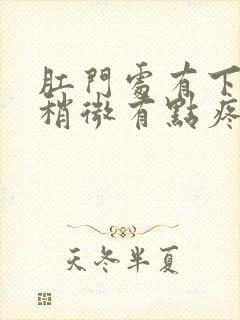 肛門處有下
稍微有點疼
天冬半夏